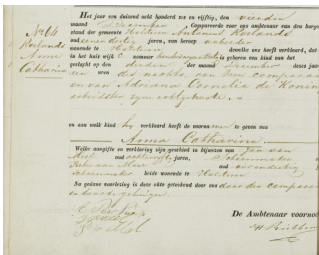 No 64
Roelands
Anna
Catharina
Het jaar een duizend acht honderd zes en vijftig, den vierden
maand December Compareerde voor ons ambtenaar van den burger
stand der gemeente Halsteren Antonius Roelands
oud jaren, van beroep arbeider
wonende te Halsteren dewelke ons heeft verklaard, dat
in het huis wijk C nommer is geboren een kind van het
geslacht op den derden der maand December dezes jaars
ten een des nachts van hem comparant
en van Adriana Cornelia de Koning
arbeidster zyne echtgenoote
en aan welk kind hy verklaard heeft de voornamen te geven van
Anna Catharina
Welke aangifte en verklaring zijn geschied in bijwezen van Jan van
Meel oud jaren,
oud
beide wonende te Halsteren
Na gedane voorlezing is deze akte geteekend door ons door den comparant
en beide getuigen
De Ambtenaar voornoemd